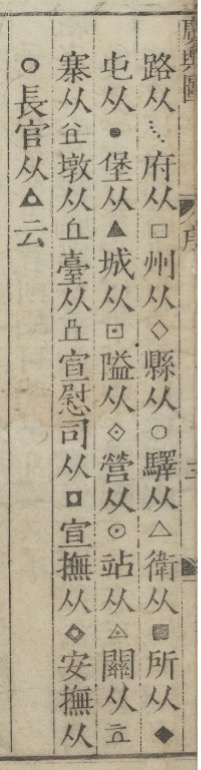 廣輿圖 序 三
路从⋰府从□州从◇縣从○驛从△衛从■所从◆
屯从●堡从▲城从⊡隘从◈營从⊙站从◬關从
寨从墩从臺从宣慰司从◘宣撫从◈安撫从
○長官从△云